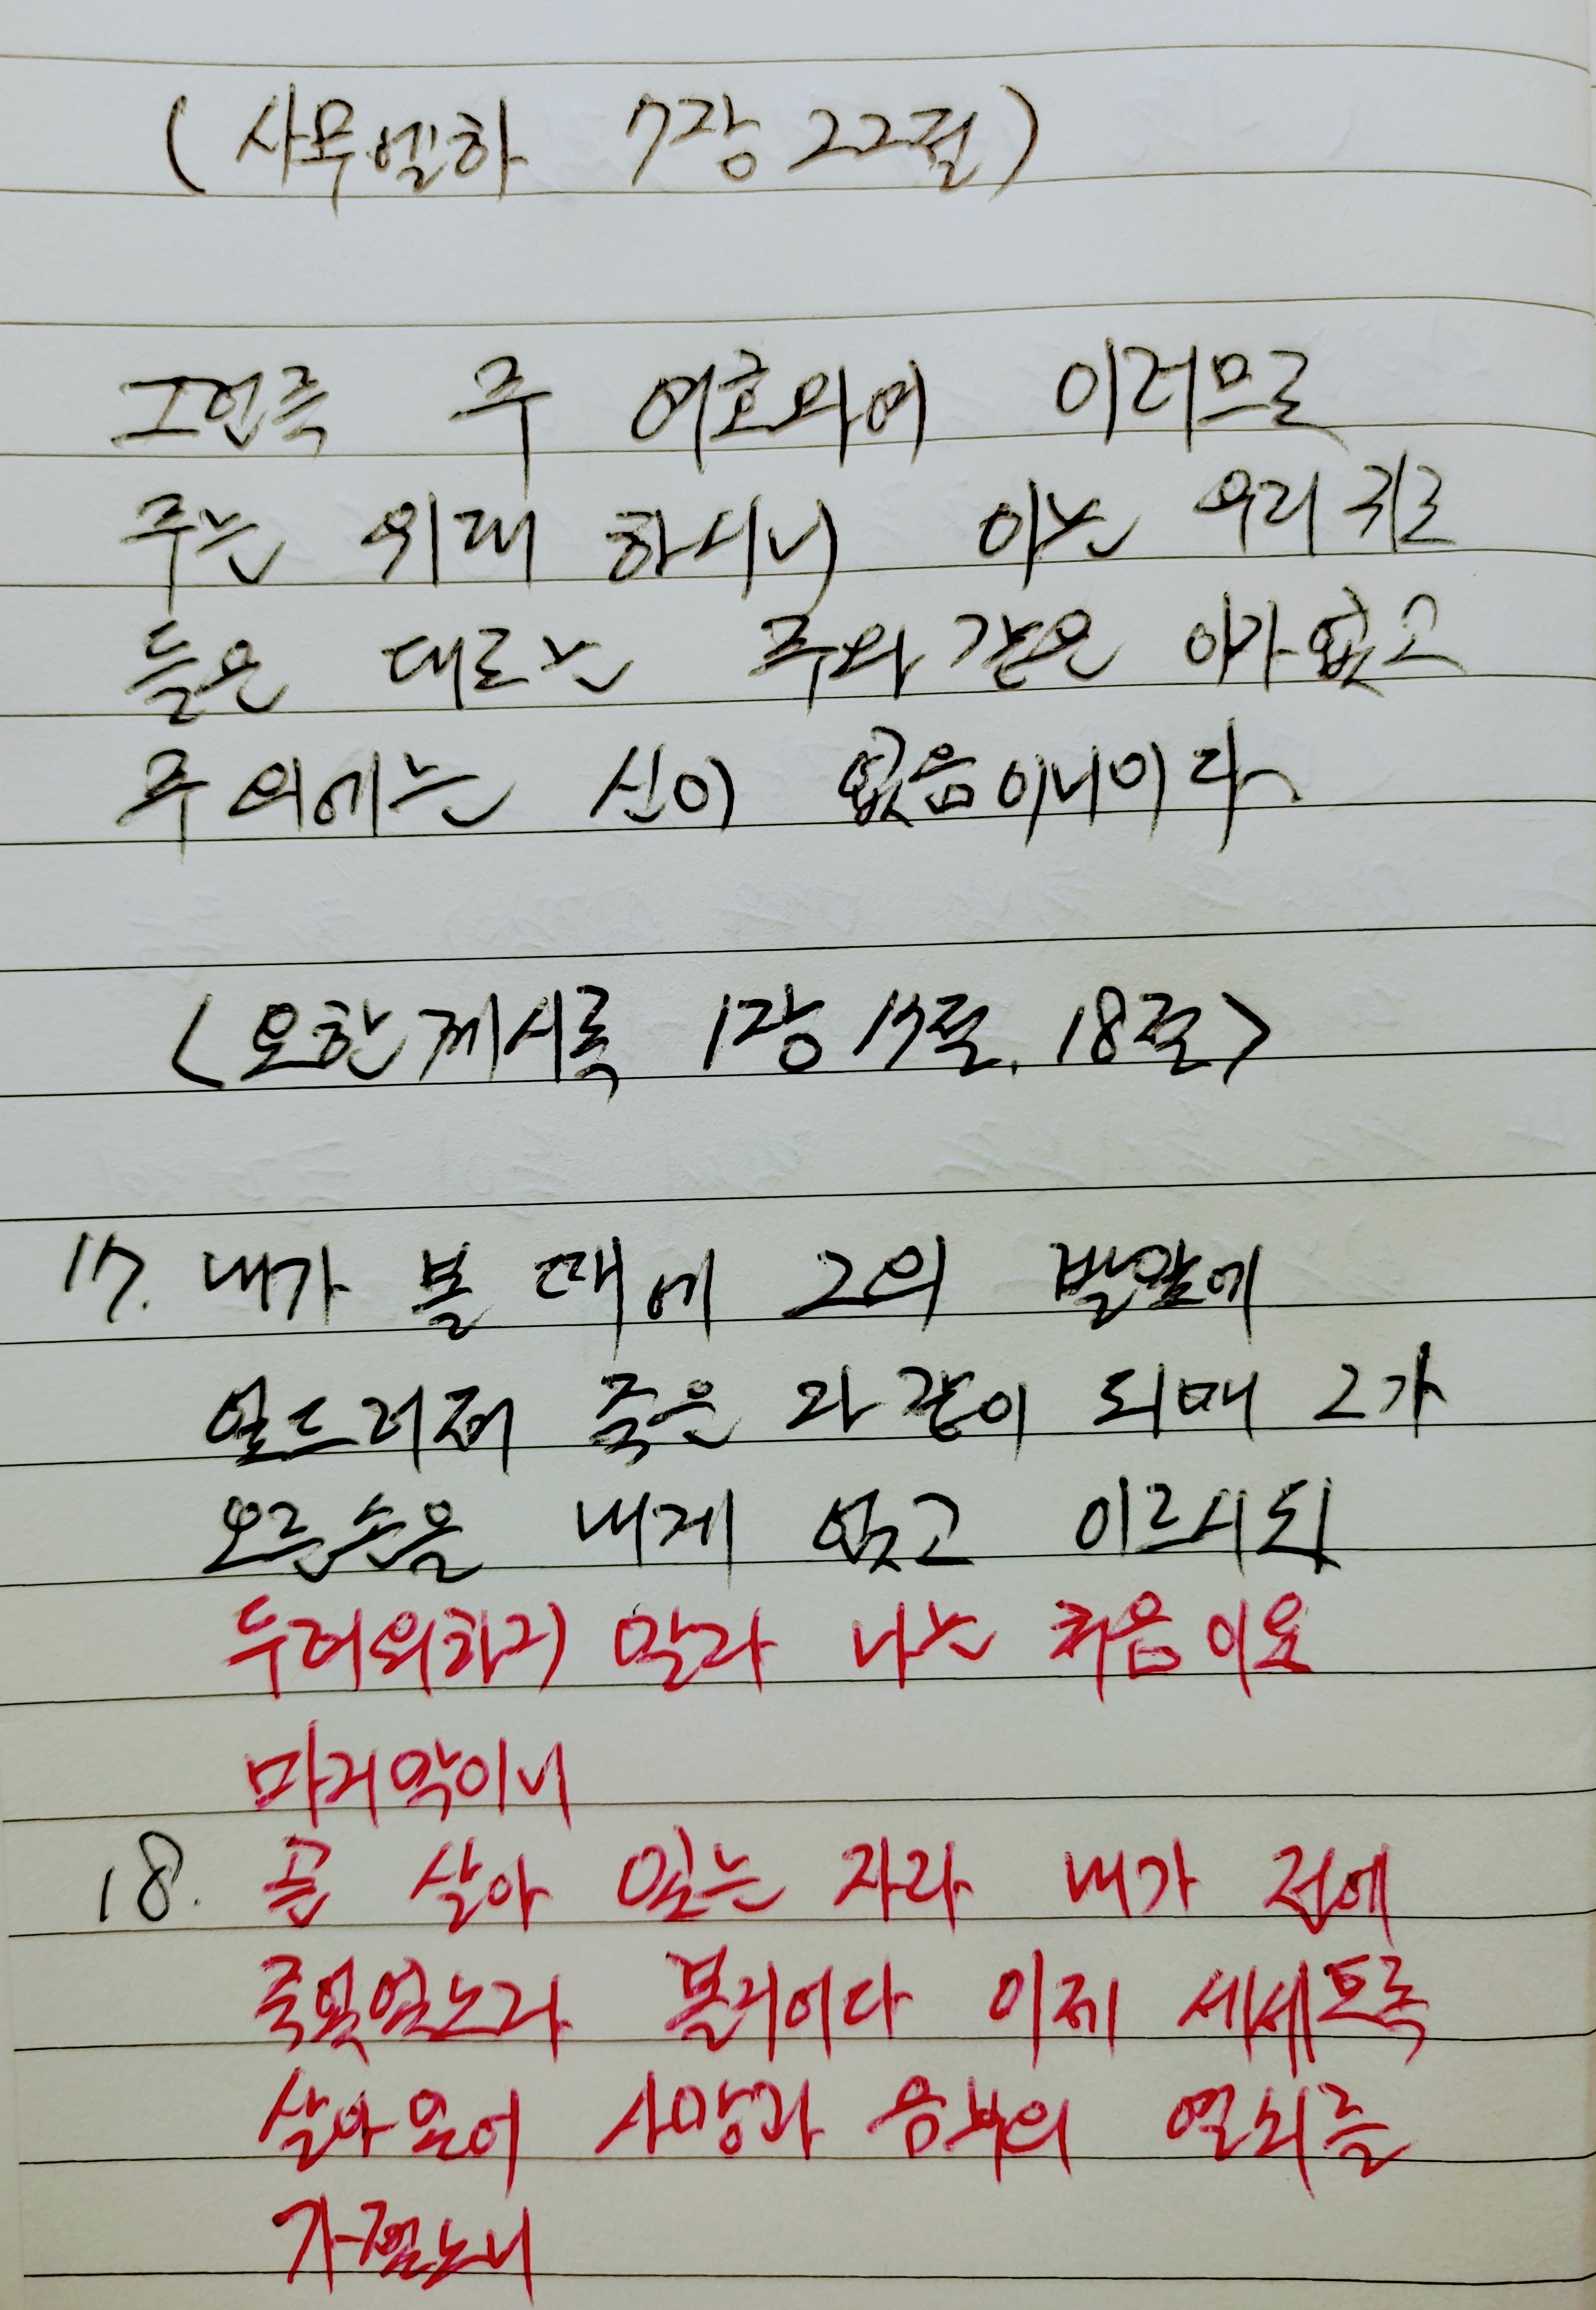 (사무엘하 7장 22절)
그런즉 주 여호와여 이러므로
주는 위대 하시니 이는 우리 귀로
들은 대로는 주와 같은 이가 없고
주 외에는 신이 없음이니이다
<요한계시록 1장 17절. 18절>
17. 내가 볼 때에 그의 발앞에
엎드러져 죽은 자 같이 되매 그가
오른손을 내게 얹고 이르시되
두려워하지 말라 나는 처음이요
마지막이니
18. 곧 살아 있는 자라 내가 전에
죽었었노라 볼지어다 이제 세세토록
살아있어 사망과 음부의 열쇠를
가졌노니